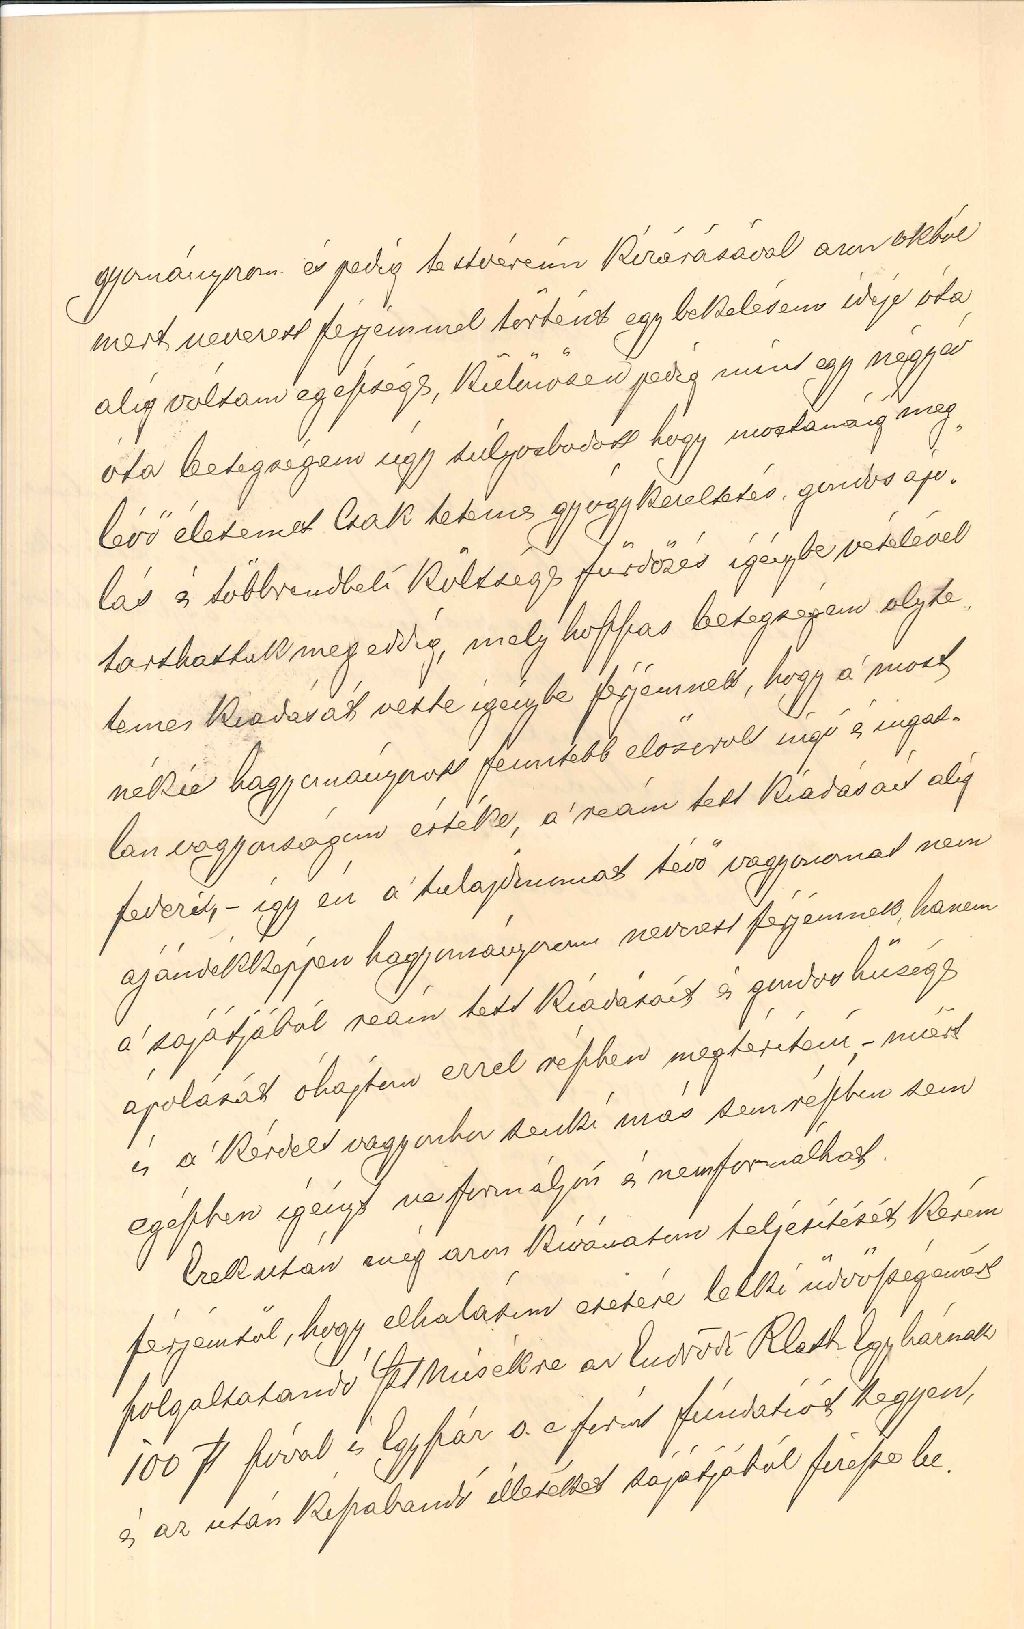 gyományozom és pedig testvéreim kizárásával azon okból
mert nevezett férjemmel történt egybekelésem ideje óta
alig vóltam egésséges, külömösen pedig mint egy négy év
óta betegségem úgy súlyosbodott hogy mostanáig meg„
lévő életemet Csak tetemes gyógykezeltetés, gondos ápo„
lás és többrendbeli költséges fürdőzés igénybe vételével
tarthattuk meg eddig, mely hosszas betegségem oly te„
temes kiadását vette igénybe férjemnek, hogy á most
nékie hagyományozott fenntebb elősorolt ingó és ingat„
lan vagyonságom értéke, á reám tett kiadásait alig
fedezi, – így én á tulajdonomat tévő vagyonomat nem
ajándékképpen hagyományozom nevezett férjemnek, hanem
á sajátjából reám tett kiadásait és gondos hűséges
ápolását óhajtom ezzel részben megtéríteni, – miért
is á kérdett vagyonhoz senki más sem részben sem
egészben igényt ne formáljon és nem formálhat.
Ezek után még azon kívánatom teljesítését kérem
férjemtől, hogy elhalásom esetére lelki üdvösségemért
szolgáltatandó Szt Misékre az Endrődi R Cath. Egyháznak
100 ft szóval is Egyszáz o. é forint fundatiót tegyen,
és az után kiszabandó illetéket sajátjából fizesse be.